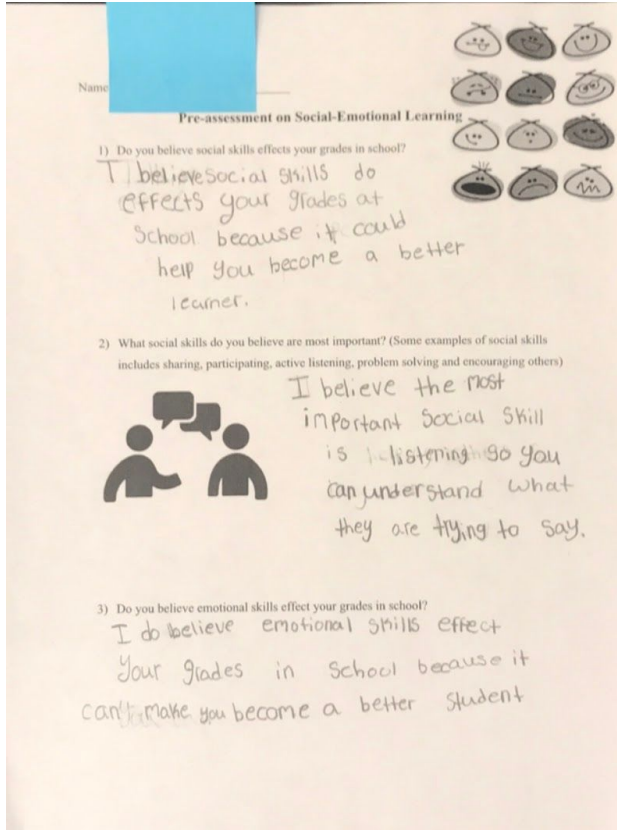 Name
Pre-assessment on Social-Emotional Learning
1) Do you believe social skills effects your grades in school?
I believe social skills do
effects your grades at
School because it could
help you become a better
learner.
2) What social skills do you believe are most important? (Some examples of social skills
includes sharing, participating, active listening, problem solving and encouraging others)
I believe the most
important Social Skill
is listening so you
can understand what
they are trying to say.
3) Do you believe emotional skills effect your grades in school?
I do believe emotional skills effect
Your grades in School because it
can make you become a better Student